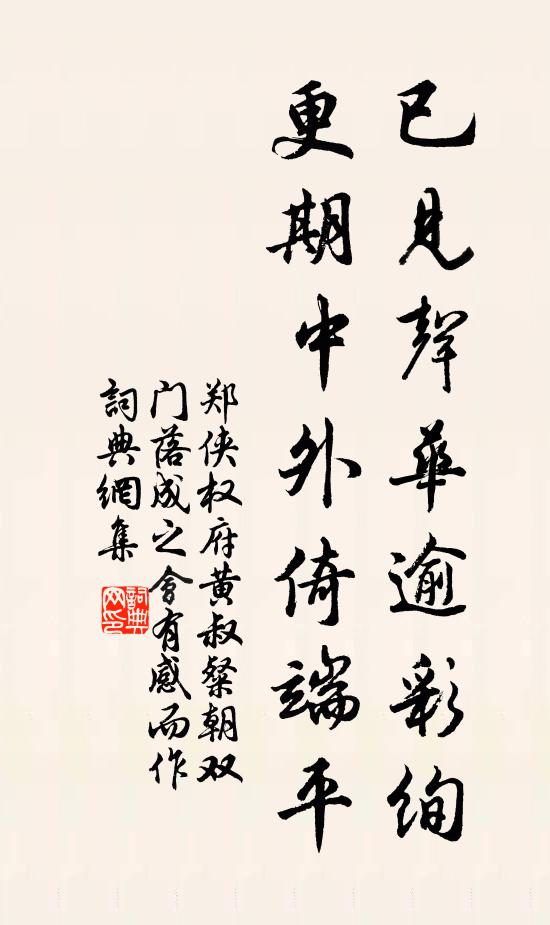 已見聲華逾彩絢
更期中外倚端平
郑侠权府黄叔粲朝双
门落成之會有感而作
詞典網集
詞典
网印